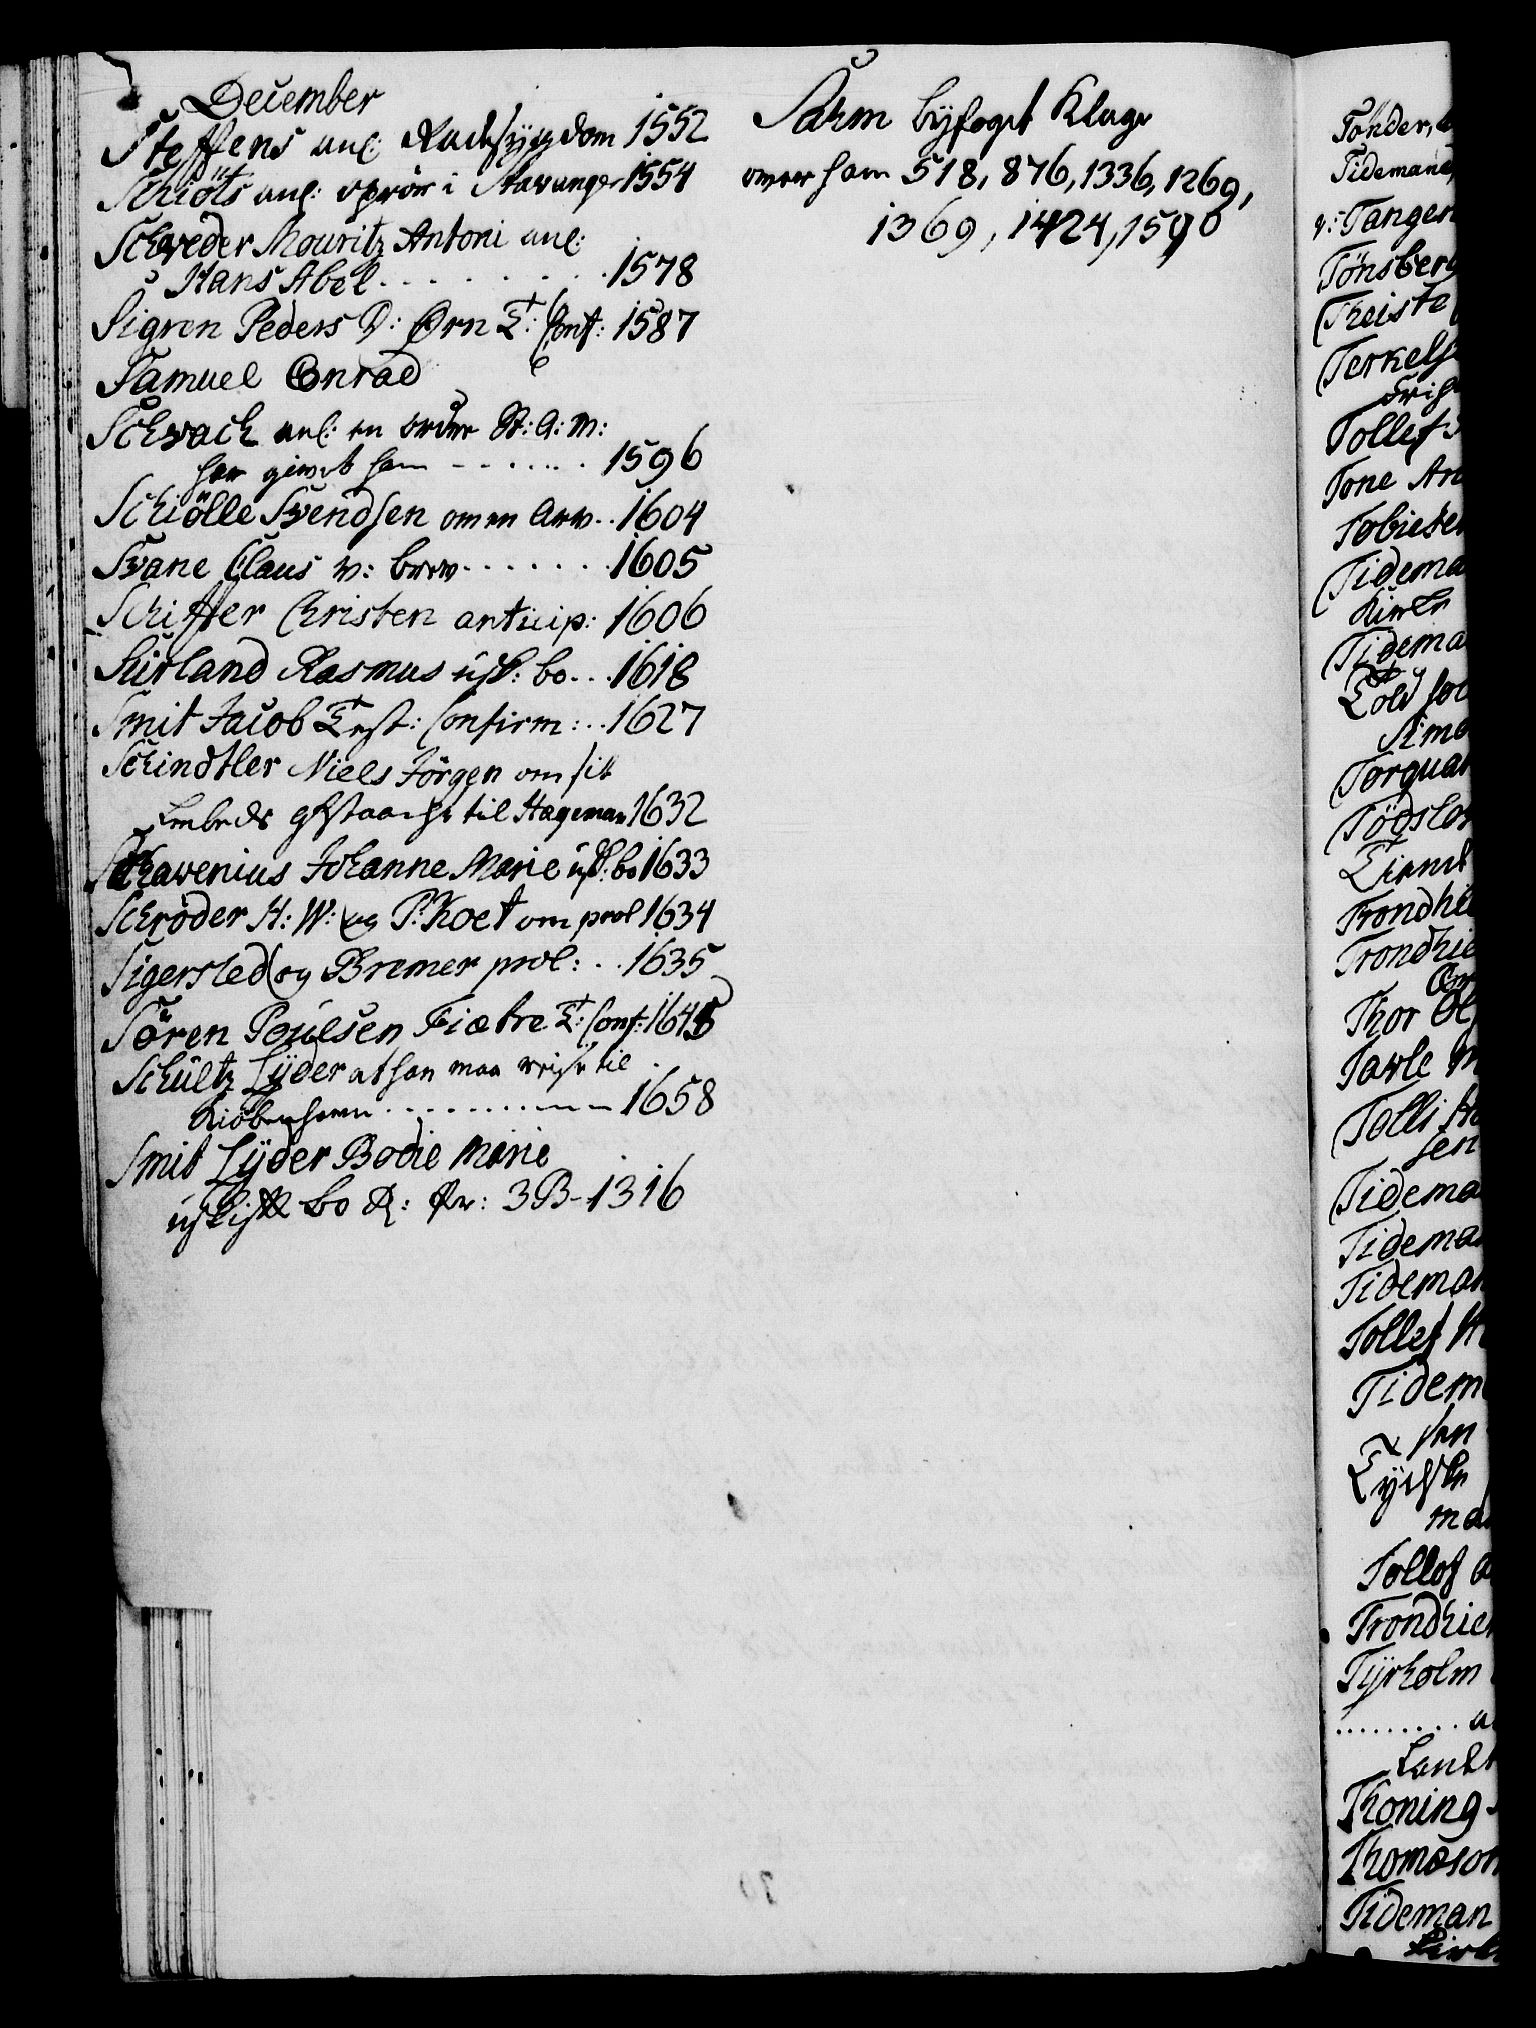 December
Steffens anl: Radesygdom 1552
Schiöts anl: oprör i Stavanger 1554
Schreder Mouritz Antoni anl:
Hans Abel . . . . . . . . 1578
Sigren Peders D: Ørn T: Conf: 1587
Samuel Conrad
Schwach anl: en ordre St: A: M:
har givet ham - - . . . . . 1596
Schiölle Svendsen om en Arv . . 1604
Svane Claus v: brev . . . . . . . 1605
Schiffer Christen anticip: 1606
Stirland Rasmus usk: bo . . . 1618
Smit Jacob Test: Confirm: . . 1627
Schindtler Niels Jörgen om sit
Embeds afstaaelse til Hageman 1632
Schavenius Johanne Marie usk: bo 1633
Schröder H: W: og P: Koet om prol 1634
Sigersted og Bremer prol: . . 1635
Sören Poulsen Fiætre T: Conf: 1645
Schültz Lÿder at han maa reise til
Kiöbenhavn . . . . . . . . . . 1658
Smit Lÿder Bodie Marie
uskift bo R: Pr: 3B-1316
Sarm byfoget Klage
over ham 518, 876, 1336, 1269,
1369, 1424, 1590
Tonder,
Tidemand
v: Tangen
Tönsberg
Theiste
Terkels
Tollef
Tone An
Tobiesen
Tidema
Tidema
Told
Torquat
Tödslov
Tiend
Trondhie
Trondhie
Thor Ol
Tarle M
Tolli
sen
Tidema
Tideman
Tideman
Tollef
Tidem
Tollof
Trondhie
Tÿrholm
. . . . . . . . . a
Land
Thoning
Thomæson
Tideman